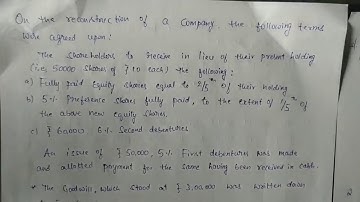 On the reconstruction of a Company the following terms
were agreed upon:
The shareholders to receive in lieu of their present holding
(i.e. 50000 shares of ₹10 each) the following:
a) Fully paid Equity shares equal to 2/5th of their holding
b) 5% Preference shares fully paid, to the extent of 1/5th of
the above new equity shares.
c) ₹ 60000 6% Second debentures.
An issue of ₹ 50,000 5% First debentures was made
and allotted payment for the same having been received in cash.
* The Goodwill, which stood at ₹ 3,00,000 was written down